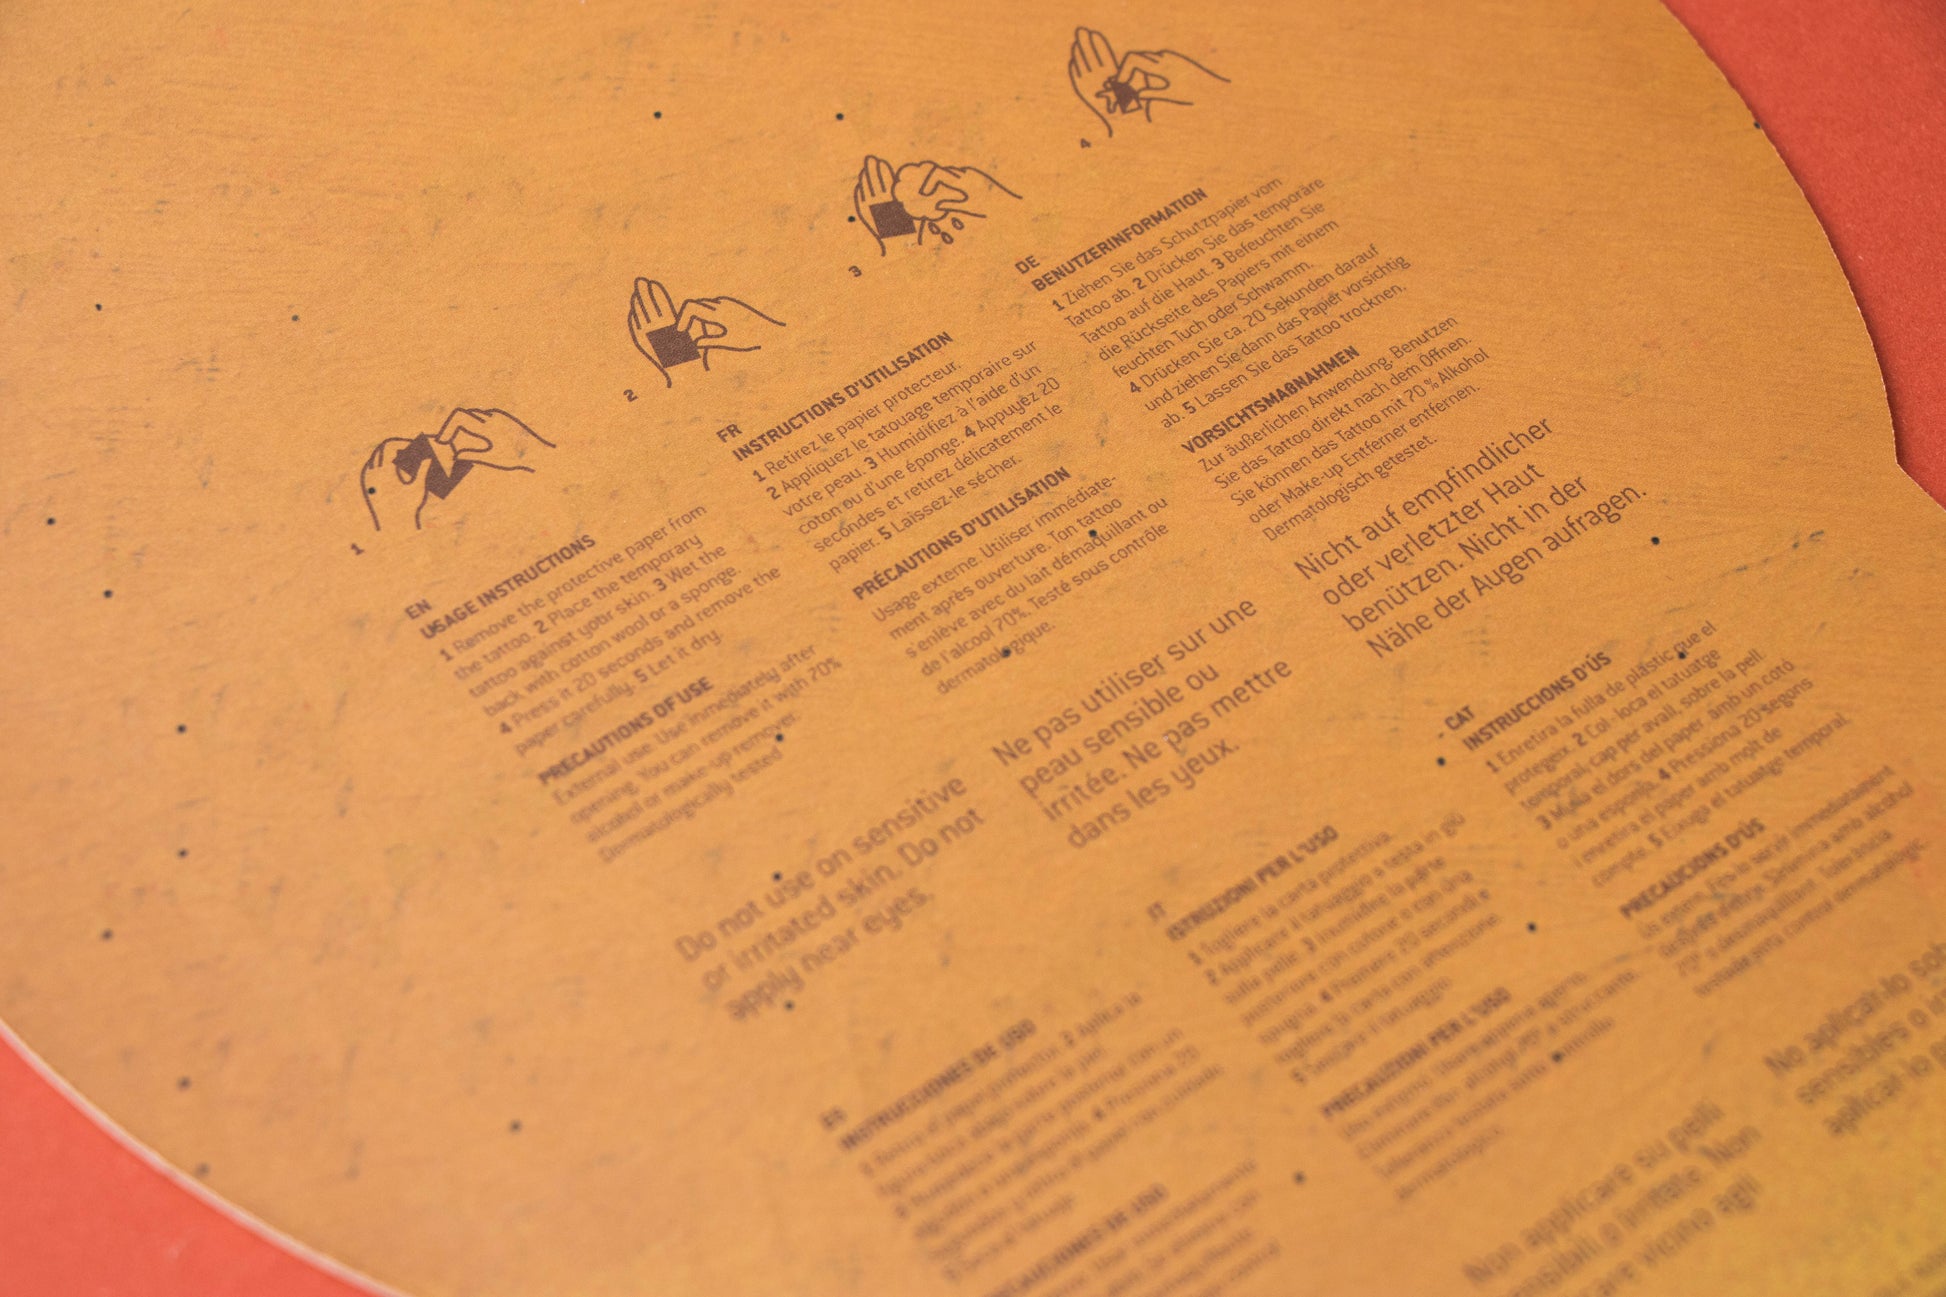 1
2
3
4
EN
USAGE INSTRUCTIONS
1 Remove the protective paper from
the tattoo. 2 Place the temporary
tattoo against your skin. 3 Wet the
back with cotton wool or a sponge.
4 Press it 20 seconds and remove the
paper carefully. 5 Let it dry.
PRECAUTIONS OF USE
External use. Use inmediately after
opening. You can remove it with 70%
alcohol or make-up remover.
Dermatologically tested
Do not use on sensitive
or irritated skin. Do not
apply near eyes.
FR
INSTRUCTIONS D'UTILISATION
1 Retirez le papier protecteur.
2 Appliquez le tatouage temporaire sur
votre peau. 3 Humidifiez à l'aide d'un
coton ou d'une éponge. 4 Appuyez 20
secondes et retirez délicatement le
papier. 5 Laissez-le sécher.
PRÉCAUTIONS D'UTILISATION
Usage externe. Utiliser immédiate-
ment après ouverture. Ton tattoo
s'enlève avec du lait démaquillant ou
de l'alcool 70%. Testé sous contrôle
dermatologique.
Ne pas utiliser sur une
peau sensible ou
irritée. Ne pas mettre
dans les yeux.
DE
BENUTZERINFORMATION
1 Ziehen Sie das Schutzpapier vom
Tattoo ab. 2 Drücken Sie das temporäre
Tattoo auf die Haut. 3 Befeuchten Sie
die Rückseite des Papiers mit einem
feuchten Tuch oder Schwamm.
4 Drücken Sie ca. 20 Sekunden darauf
und ziehen Sie dann das Papier vorsichtig
ab. 5 Lassen Sie das Tattoo trocknen.
VORSICHTSMAßNAHMEN
Zur äußerlichen Anwendung. Benutzen
Sie das Tattoo direkt nach dem Öffnen.
Sie können das Tattoo mit 70 % Alkohol
oder Make-up Entferner entfernen.
Dermatologisch getestet.
Nicht auf empfindlicher
oder verletzter Haut
benützen. Nicht in der
Nähe der Augen aufragen.
ES
INSTRUCCIONES DE USO
PRECAUCIONES DE USO
IT
ISTRUZIONI PER L'USO
1 Togliere la carta protettiva.
2 Applicare il tatuaggio a testa in giù
sulla pelle. 3 Inumidire la parte
posteriore con cotone o con una
spugna. 4 Premere 20 secondi e
togliere la carta con attenzione.
PRECAUZIONI PER L'USO
Non applicare su pelli
sensibili o irritate. Non
CAT
INSTRUCCIONS D'ÚS
1 Enretira la fulla de plàstic que el
protegeix. 2 Col· loca el tatuatge
temporal, cap per avall, sobre la pell.
3 Mulla el dors del paper amb un cotó
o una esponja. 4 Pressiona 20 segons
i enretira el paper amb molt de
compte. 5 Eixuga el tatuatge temporal.
PRECAUCIONS D'ÚS
No aplicar-lo
sensibles o
aplicar-lo